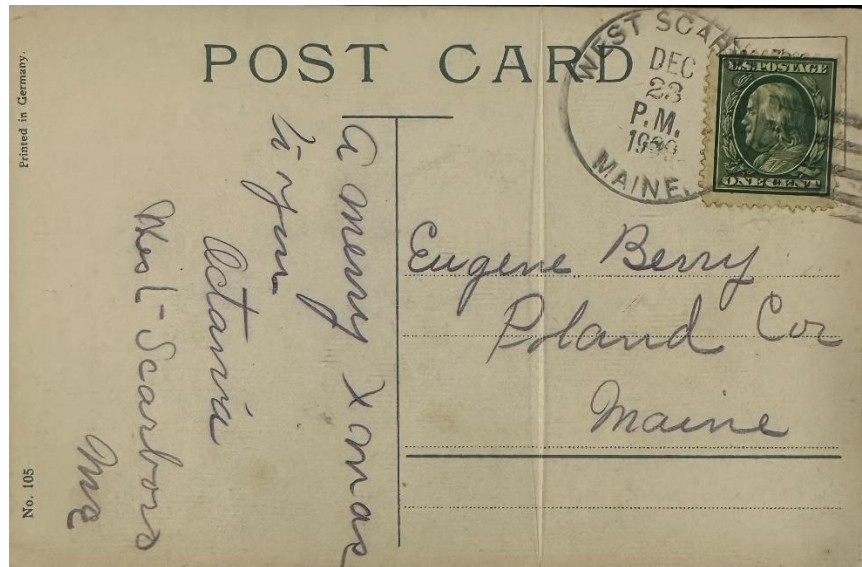 POST CARD
Printed in Germany.
No. 105
WEST SCAR
DEC
23
P.M.
MAINE.
U.S. POSTAGE
ONE CENT
A merry Xmas
to you
Octavia
West Scarboro
Me
Eugene Berry
Poland Cor
Maine